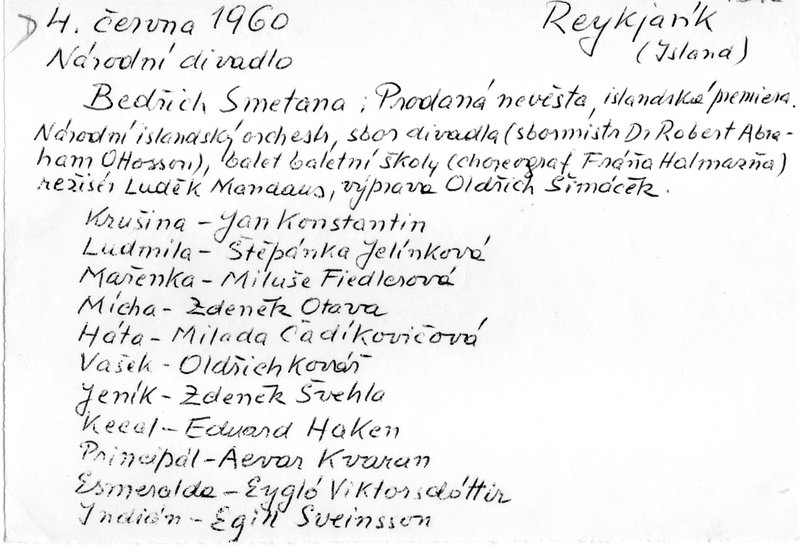 4. června 1960 Reykjavík
(Island)
Národní divadlo
Bedřich Smetana: Prodaná nevěsta, islandská premiera.
Národní islandský orchestr, sbor divadla (sbormistr Dr Robert Abra-
ham OHosson), balet baletní školy (choreograf Fráňa Halmazňa)
režisér Luděk Mandaus, výprava Oldřich Šimáček.
Krušina - Jan Konstantin
Ludmila - Štěpánka Jelínková
Mařenka - Miluše Fiedlerová
Mícha - Zdeněk Otava
Háta - Milada Čadíkovičová
Vašek - Oldřich Kovář
Jeník - Zdeněk Švehla
Kecal - Eduard Haken
Principál - Aevar Kvaran
Esmeralda - Eygló Viktorsdóttir
Indián - Egill Sveinsson